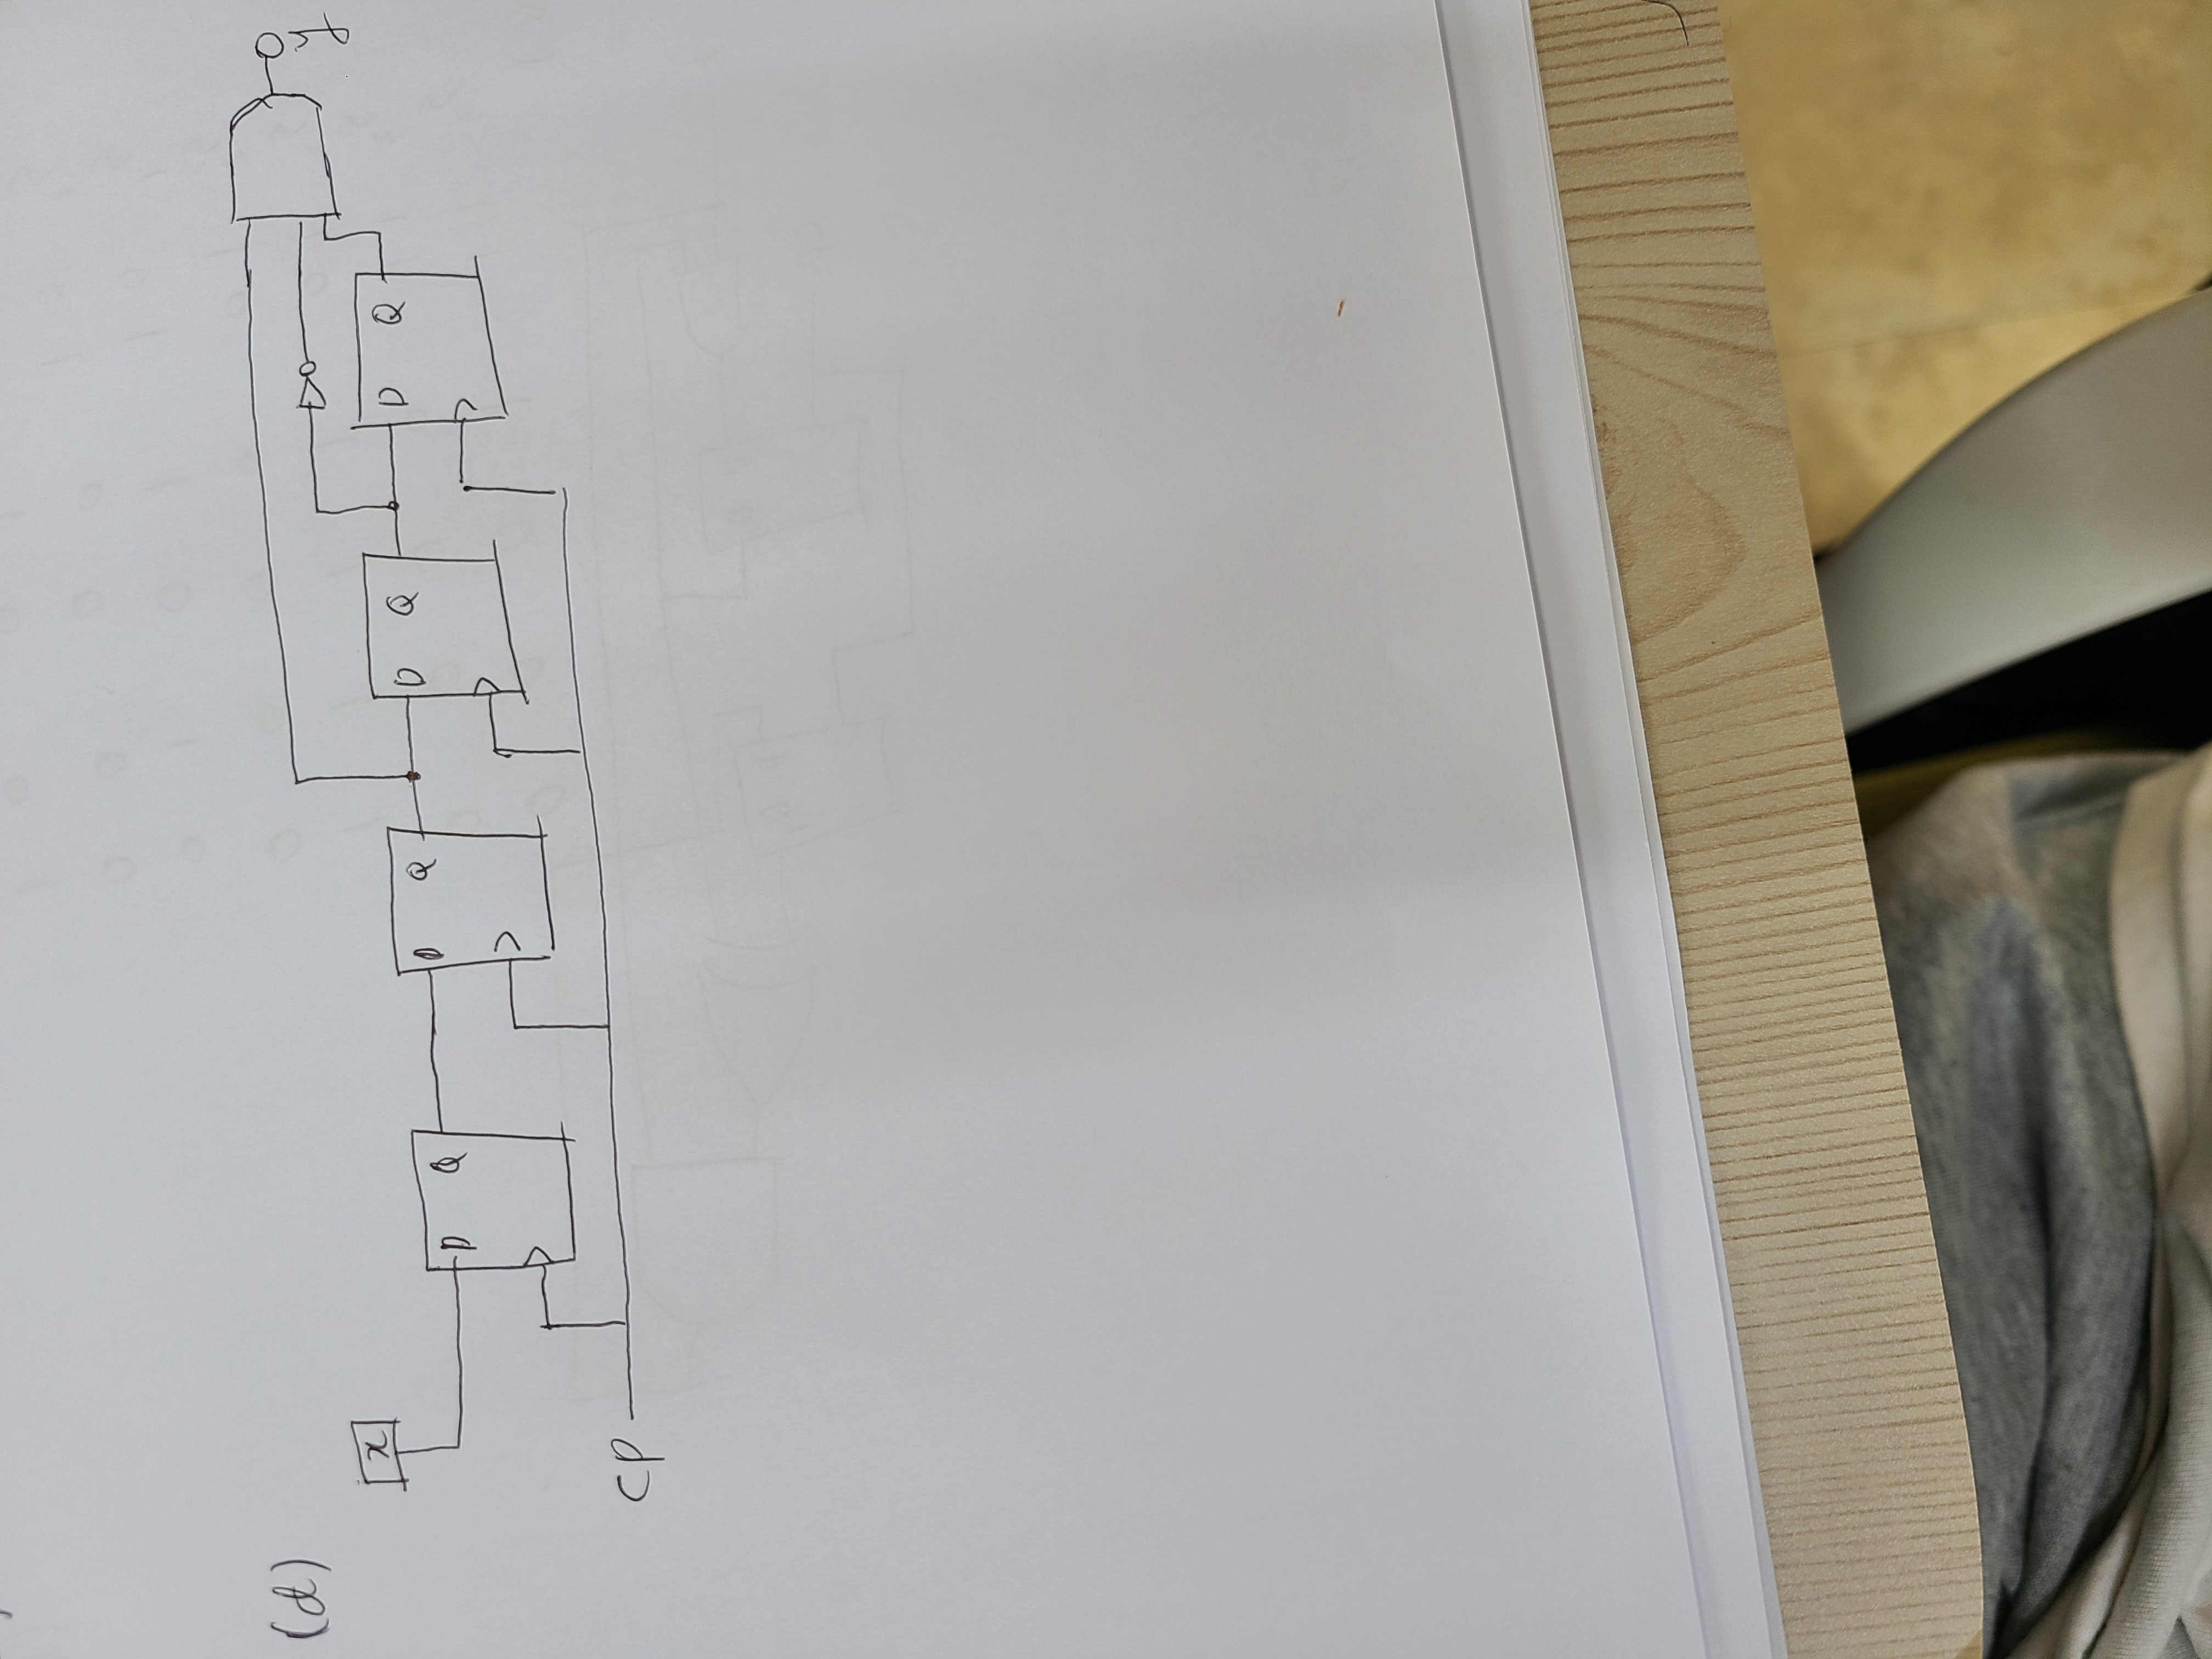 (d)
x
D Q
D Q
D Q
D Q
y
CP